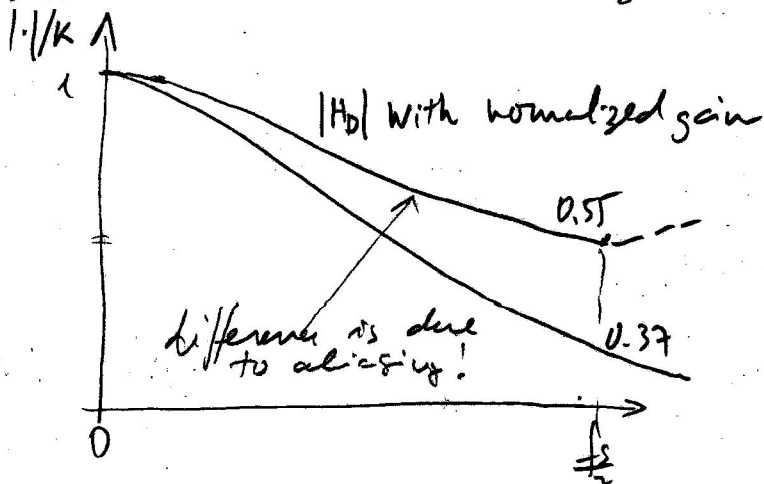 |·|/K
1
|H_D| with normalized gain
0.55
difference is due
to aliasing!
0.37
0
fs/2